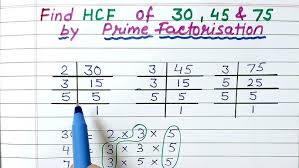 Find HCF of 30, 45 & 75
by Prime Factorisation
2 30 3 45 3 75
3 15 3 15 5 25
5 5 5 5 5 5
1 1 1
30 = 2 × 3 × 5
3 × 3 × 5